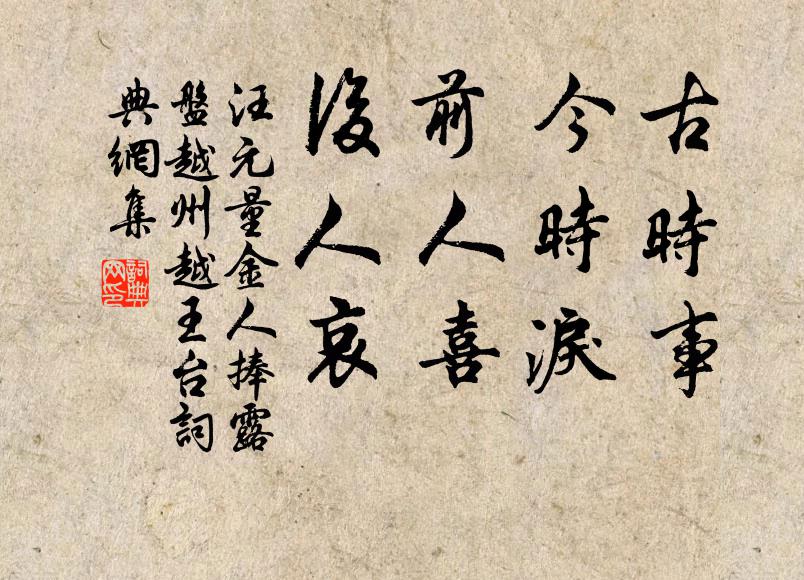 古時事
今時淚
前人喜
後人哀
汪元量金人捧露
盤越州越王台詞
典網集
詞典網印